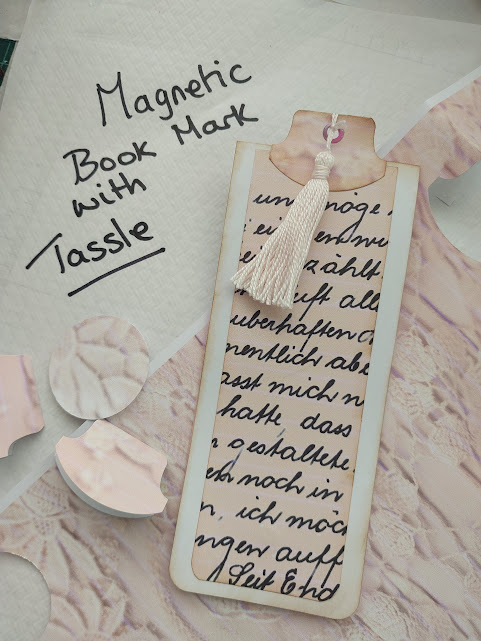 Magnetic
Book Mark
with
Tassle
und möge
ei
zählt.
uft alle
uberhaften
mentlich abe
asst mich n
hatte, dass
gestaltete.
noch in
n, ich möc
ngen auff
Seit End